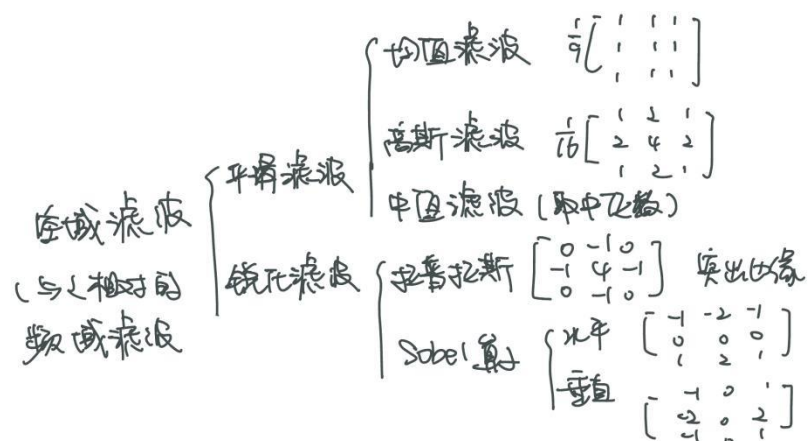 空域滤波
(与之相对的
频域滤波
平滑滤波
均值滤波 1/9 [1 1 1
1 1 1
1 1 1]
高斯滤波 1/16 [1 2 1
2 4 2
1 2 1]
中值滤波 (取中位数)
锐化滤波
拉普拉斯 [0 -1 0
-1 4 -1
0 -1 0] 突出边缘
Sobel 算子
水平 [-1 -2 -1
0 0 0
1 2 1]
垂直 [-1 0 1
-2 0 2
-1 0 1]